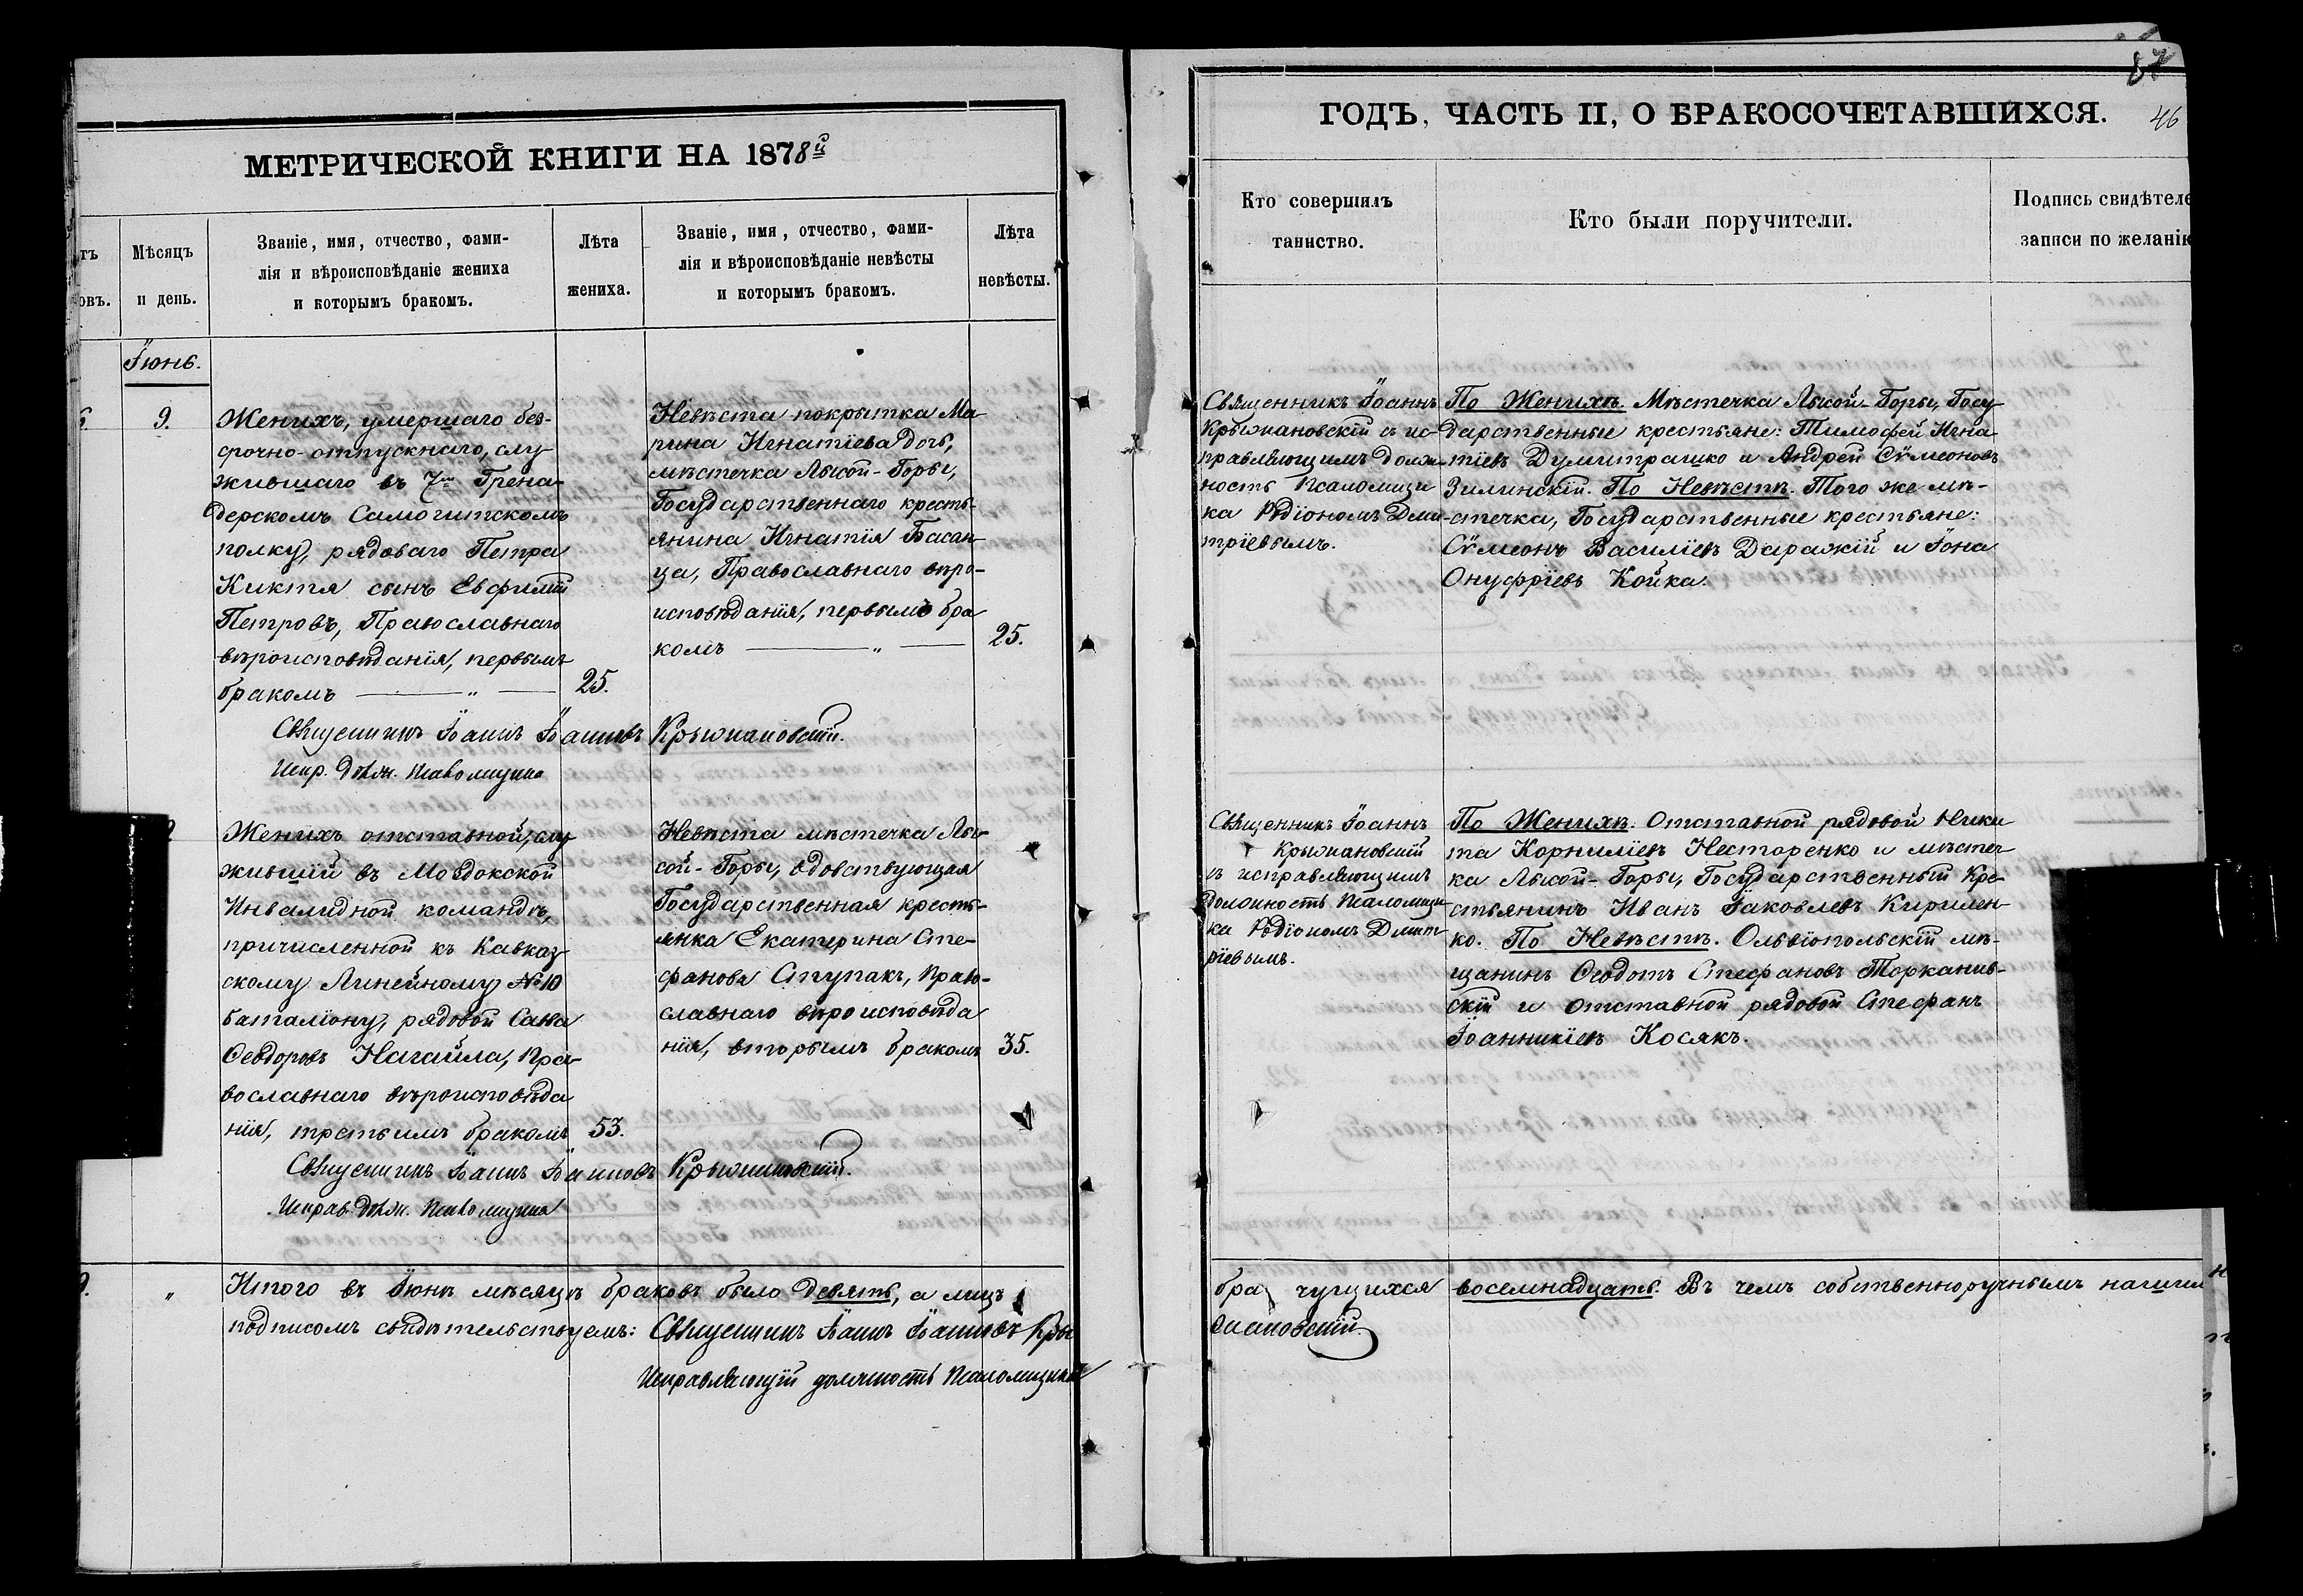 МЕТРИЧЕСКОЙ КНИГИ НА 1878й
Мѣсяцъ
и день.
Званіе, имя, отчество, фами-
лія и вѣроисповѣданіе жениха
и которымъ бракомъ.
Лѣта
жениха.
Званіе, имя, отчество, фами-
лія и вѣроисповѣданіе невѣсты
и которымъ бракомъ.
Лѣта
невѣсты.
Іюнь.
9.
Женихъ, умершаго без-
срочно-отпускнаго, слу
жившаго въ 7мъ Грена
дерскомъ Самогитскомъ
полку, рядоваго Петра
Киктя сынъ Евфимій
Петровъ, Православнаго
вѣроисповѣданія, первымъ
бракомъ — „ —
25.
Невѣста покрытка Ма
рина Игнатіева дочь,
мѣстечка Лысой-Горы,
Государственнаго кресть-
янина Игнатія Басан-
ца, Православнаго вѣро-
исповѣданія, первымъ бра
комъ — „ —
25.
Священникъ Іоаннъ Іоанновъ Крыжановскій.
Испр. долж. Псаломщика
Женихъ отставной, слу
жившій въ Моздокской
Инвалидной командѣ,
причисленной къ Кавказ
скому Линейному №10
баталіону, рядовой Савва
Ѳеодоровъ Нагайла, Пра-
вославнаго вѣроисповѣда
нія, третьимъ бракомъ
53.
Невѣста мѣстечка Лы-
сой-Горы, вдовствующая
Государственная кресть-
янка Екатерина Сте-
фанова Ступакъ, Право-
славнаго вѣроисповѣда
нія, вторымъ бракомъ
35.
Священникъ Іоаннъ Іоанновъ Крыжановскій.
Исправ. долж. Псаломщика
„
Итого въ Іюнѣ мѣсяцѣ браковъ было девять, а лицъ
подписомъ свидѣтельствуемъ: Священникъ Іоаннъ Іоанновъ Кры
Исправляющій должность Псаломщика
46
ГОДЪ, ЧАСТЬ II, О БРАКОСОЧЕТАВШИХСЯ.
Кто совершилъ
таинство.
Кто были поручители.
Подпись свидѣтеле
записи по желанію
Священникъ Іоаннъ
Крыжановскій съ ис-
правляющимъ долж-
ность Псаломщи
ка Родіономъ Дми-
тріевымъ.
По Женихѣ. Мѣстечка Лысой-Горы, Госу-
дарственные крестьяне: Тимофей Игна
тіевъ Думитрашко и Андрей Сѵмеоновъ
Зилинскій. По Невѣстѣ. Того же мѣ-
стечка, Государственные крестьяне:
Сѵмеонъ Василіевъ Даражій и Іона
Онуфріевъ Койка.
Священникъ Іоаннъ
Крыжановскій
съ исправляющимъ
должность Псаломщи
ка Родіономъ Дмит
ріевымъ.
По Женихѣ. Отставной рядовой Ники
та Корниліевъ Несторенко и мѣстеч
ка Лысой-Горы, Государственный Кре-
стьянинъ Иванъ Іаковлевъ Кирилен-
ко. По Невѣстѣ. Ольвіопольскій мѣ-
щанинъ Ѳеодотъ Стефановъ Торканив-
скій и отставной рядовой Стефанъ
Іоанникіевъ Косякъ.
бра чущихся восемнадцать. Въ чемъ собственноручнымъ нашим
жановскій.